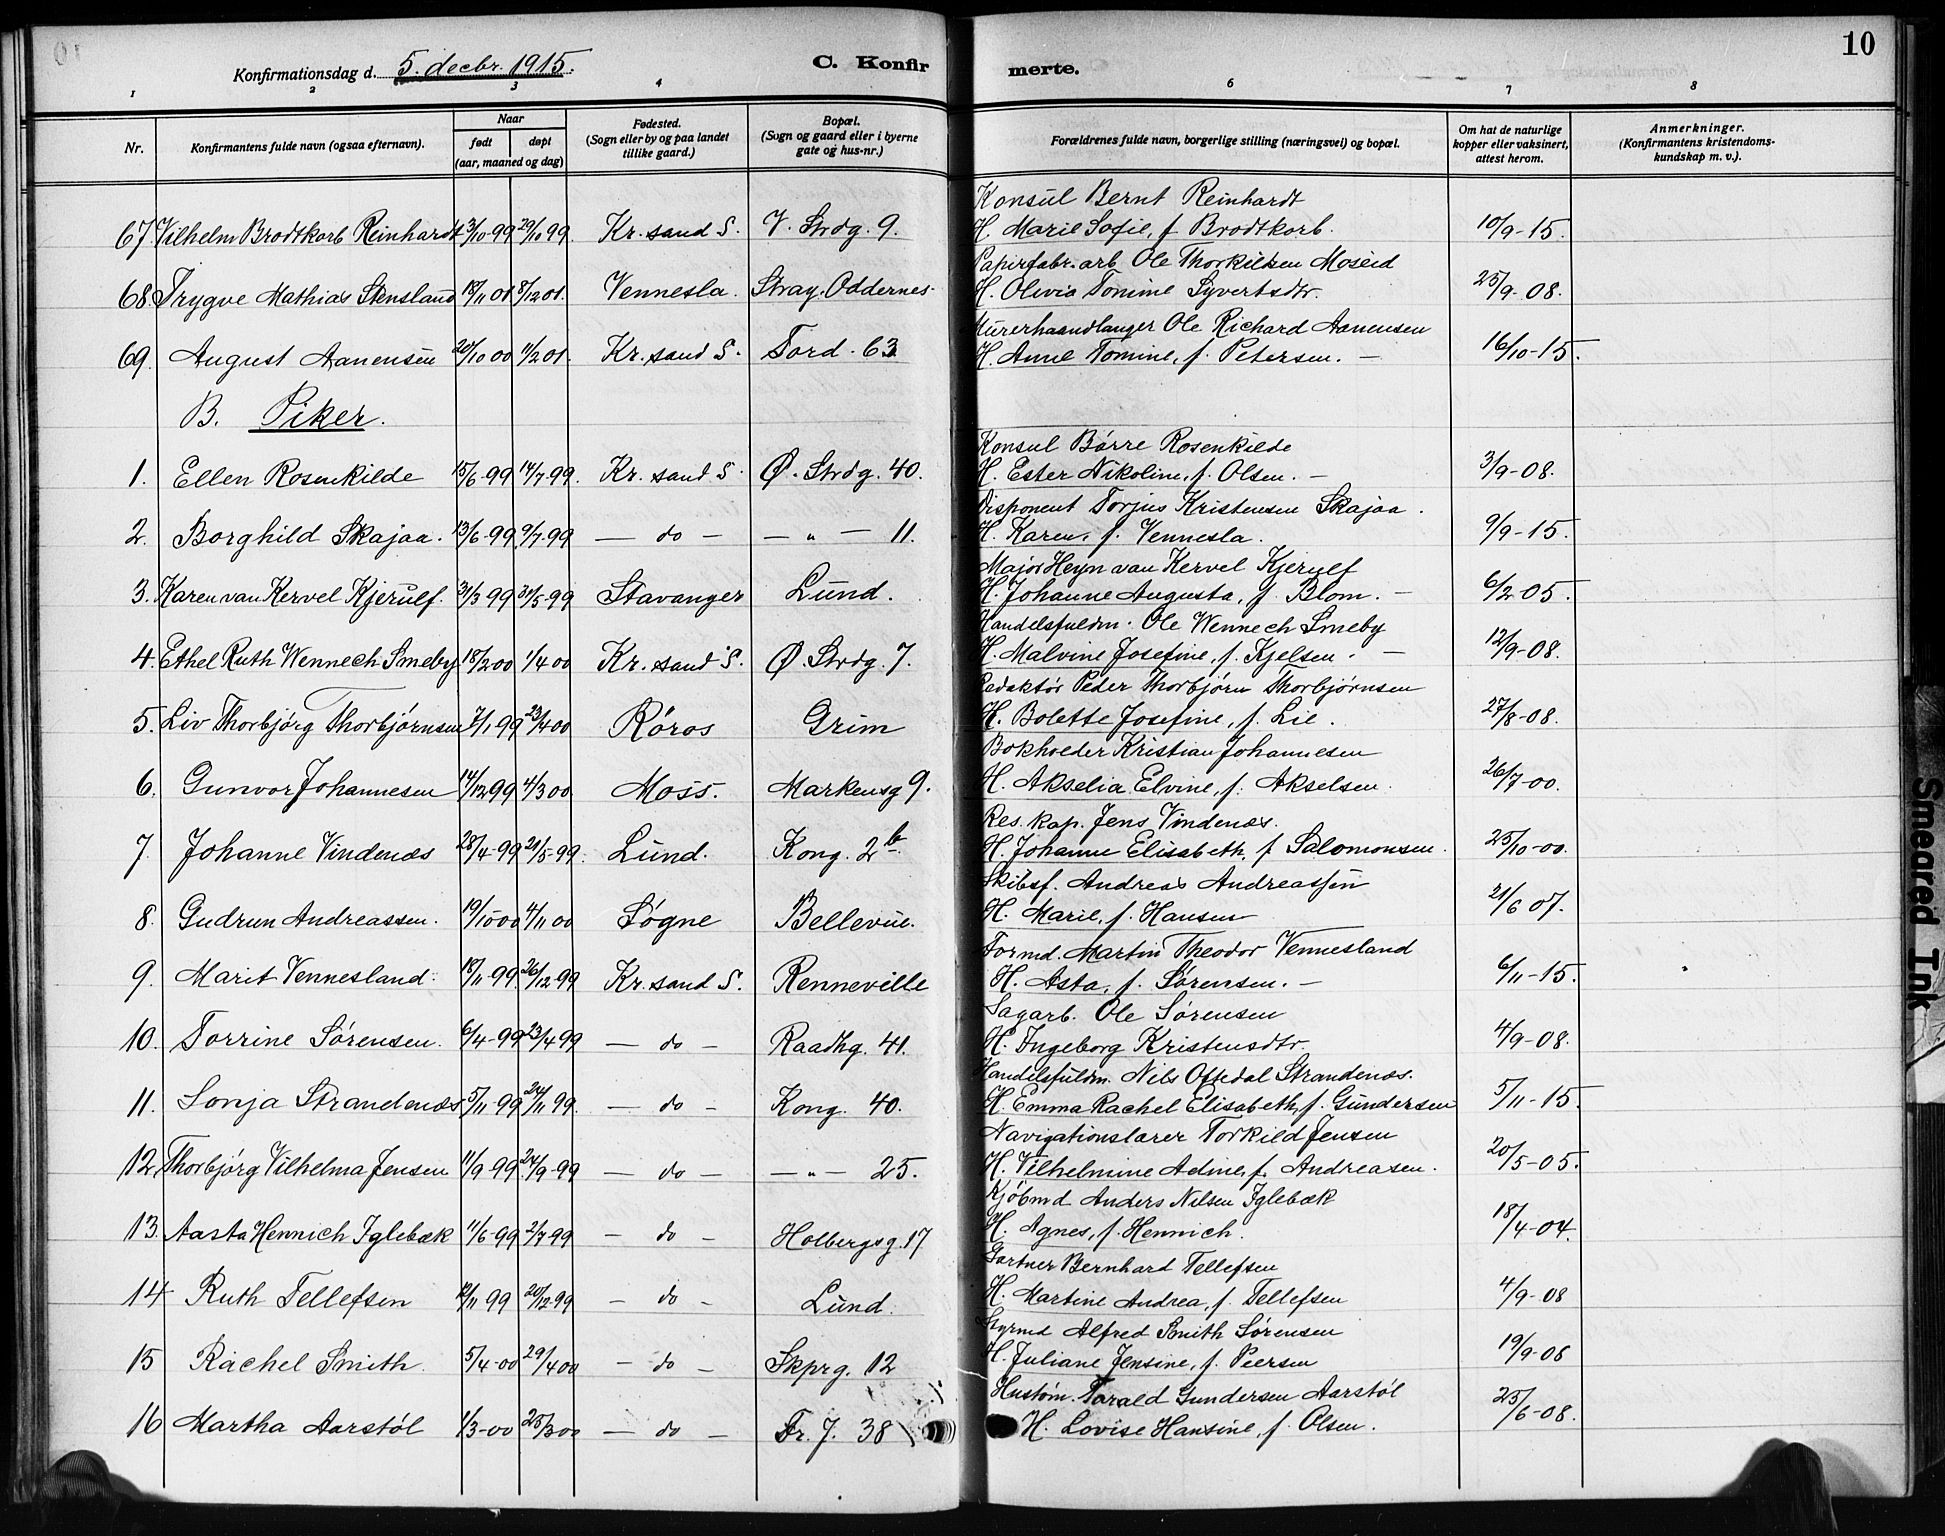 10
Konfirmationsdag d. 5. decbr. 1915.
C. Konfirmerte.
1 2 3 4 6 7 8
Nr.
Konfirmantens fulde navn (ogsaa efternavn).
Naar
født døpt
(aar, maaned og dag)
Fødested.
(Sogn eller by og paa landet
tillike gaard.)
Bopæl.
(Sogn og gaard eller i byerne
gate og hus-nr.)
Forældrenes fulde navn, borgerlige stilling (næringsvei) og bopæl.
Om hat de naturlige
kopper eller vaksinert,
attest herom.
Anmerkninger.
(Konfirmantens kristendoms-
kundskap m. v.).
Konsul Bernt Reinhardt
67. Vilhelm Brodtkorb Reinhardt 3/10 99 29/10 99. Kr. sand S. V. Strdg. 9. H. Marie Sofie, f. Brodtkorb. 10/9-15.
Papirfabr. arb. Ole Thorkilsen Moseid
68. Trygve Mathias Stensland 18/11 01 8/12 01. Vennesla. Stray. Oddernes. H. Olivia Tomine Syvertsdtr. 25/9-08.
Murerhaandlanger Ole Richard Aanensen
69. August Aanensen 20/10 00 11/2 01. Kr. sand S. Tord. 63 H. Anne Tomine, f. Petersen. — 16/10-15.
B. Piker.
Konsul Børre Rosenkilde
1. Ellen Rosenkilde 15/6-99 14/7-99. Kr. sand S. Ø. Strdg. 40. H. Ester Nikoline, f. Olsen. — 3/9-08.
Disponent Torjus Kristensen Skajaa.
2. Borghild Skajaa. 13/6-99 9/7-99 — do — — „ — 11. H. Karen, f. Vennesla. 9/9-15.
Major Heyn van Kervel Kjerulf
3. Karen van Kervel Kjerulf. 31/3 99 31/5-99 Stavanger Lund. H. Johanne Augusta, f. Blom. — 6/2 05.
Handelsfuldm. Ole Wennech Smeby
4. Ethel Ruth Wennech Smeby 18/2 00 1/4 00 Kr. sand S. Ø. Strdg. 7. H. Malvine Josefine, f. Kjelsen. — 12/9-08.
Redaktør Peder Thorbjørn Thorbjørnsen
5. Liv Thorbjørg Thorbjørnsen 7/1 99 23/4 00 Røros Grim H. Bolette Josefine, f. Lie. 27/8-08.
Bokholder Kristian Johannesen
6. Gunvor Johannesen 14/12 99 4/3 00 Moss. Markensg 9. H. Akselia Elvine, f. Akselsen. 26/7-00.
Res. kap. Jens Vindenæs.
7. Johanne Vindenæs 28/4-99 21/5-99. Lund. Kong. 2b. H. Johanne Elisabeth, f. Salomonsen. 25/10-00.
Skibsf. Andreas Andreassen
8. Gudrun Andreassen. 19/10 00 4/11 00 Søgne Bellevue. H. Marie, f. Hansen 21/6 07.
Formd. Martin Theodor Vennesland
9. Marit Vennesland. 18/11 99 26/12 99 Kr. sand S. Renneville H. Asta, f. Sørensen. — 6/11-15.
Sagarb. Ole Sørensen
10. Torrine Sørensen. 6/4-99 23/4 99 — do — Raadhg. 41. H. Ingeborg Kristensdtr. 4/9-08.
Handelsfuldm. Nils Oftedal Strandenæs.
11. Sonja Strandenæs 5/11-99 24/11 99. — do — Kong. 40. H. Emma Rachel Elisabeth, f. Gundersen 5/11-15.
Navigationslærer Torkild Jensen
12. Thorbjørg Vilhelma Jensen 11/9-99. 24/9-99 — do — — „ — 25. H. Vilhelmine Adine, f. Andreasen. 20/5-05.
Kjøbmd Anders Nilsen Iglebæk
13. Aasta Hennich Iglebæk 11/6-99 2/7 99 — do — Holbergsg. 17 H. Agnes, f. Hennich. 18/4-04.
Gartner Bernhard Tellefsen
14 Ruth Tellefsen 12/11 99 20/12 99 — do — Lund. H. Martine Andrea, f. Tellefsen 4/9-08
Styrmd Alfred Smith Sørensen
15 Rachel Smith. 5/4-00 29/4 00 — do — Skprg. 12 H. Juliane Jensine, f. Peersen 19/9-08
Hustøm. Tarald Gundersen Aarstøl
16 Martha Aarstøl 1/3-00 25/3 00 — do — Fr. J. 38 H. Lovise Hansine, f. Olsen. 25/6-08.
Smeared Ink